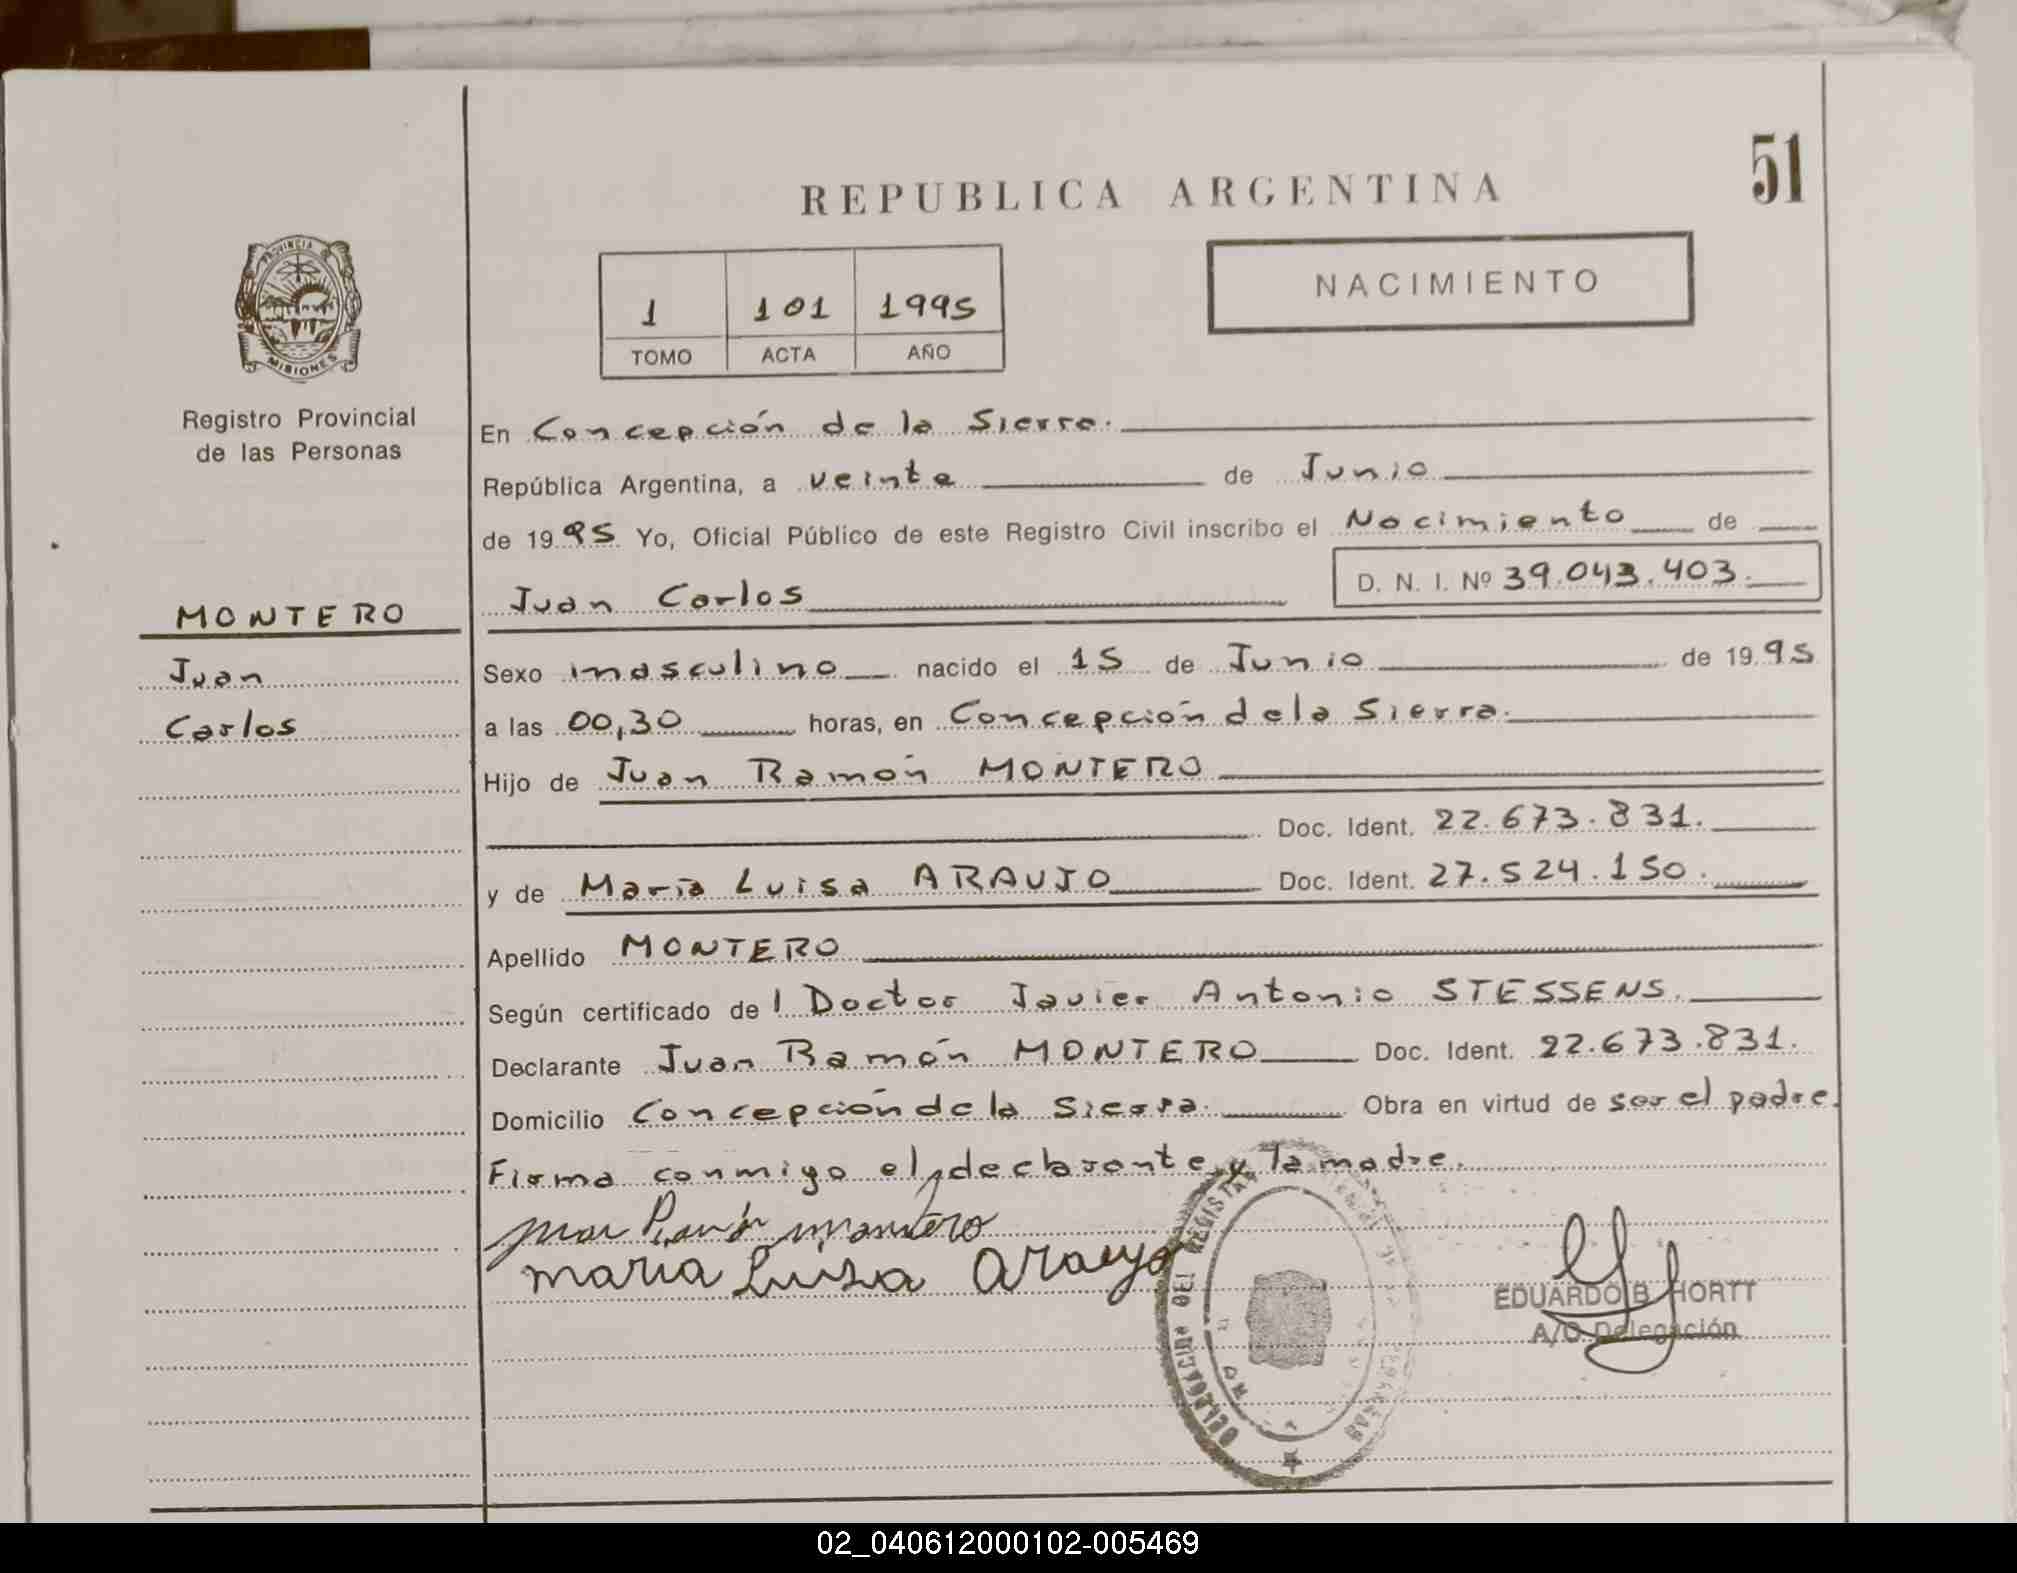 REPUBLICA ARGENTINA
51
PROVINCIA
MISIONES
Registro Provincial
de las Personas
1 101 1995
TOMO ACTA AÑO
NACIMIENTO
En Concepción de la Sierra.
República Argentina, a veinte de Junio
de 1995 Yo, Oficial Público de este Registro Civil inscribo el Nacimiento de
Juan Carlos D. N. I. Nº 39.043.403.
MONTERO
Juan
Carlos
Sexo masculino nacido el 15 de Junio de 1995
a las 00,30 horas, en Concepción de la Sierra.
Hijo de Juan Ramón MONTERO
Doc. Ident. 22.673.831.
y de María Luisa ARAUJO Doc. Ident. 27.524.150.
Apellido MONTERO
Según certificado de l Doctor Javier Antonio STESSENS.
Declarante Juan Ramón MONTERO Doc. Ident. 22.673.831.
Domicilio Concepción de la Sierra. Obra en virtud de ser el padre.
Firma conmigo el declarante y la madre.
Juan Ramón Montero
maria Luisa Araujo
DELEGACION DEL REGISTRO
EDUARDO B. HORTT
A/C Delegación
02_040612000102-005469